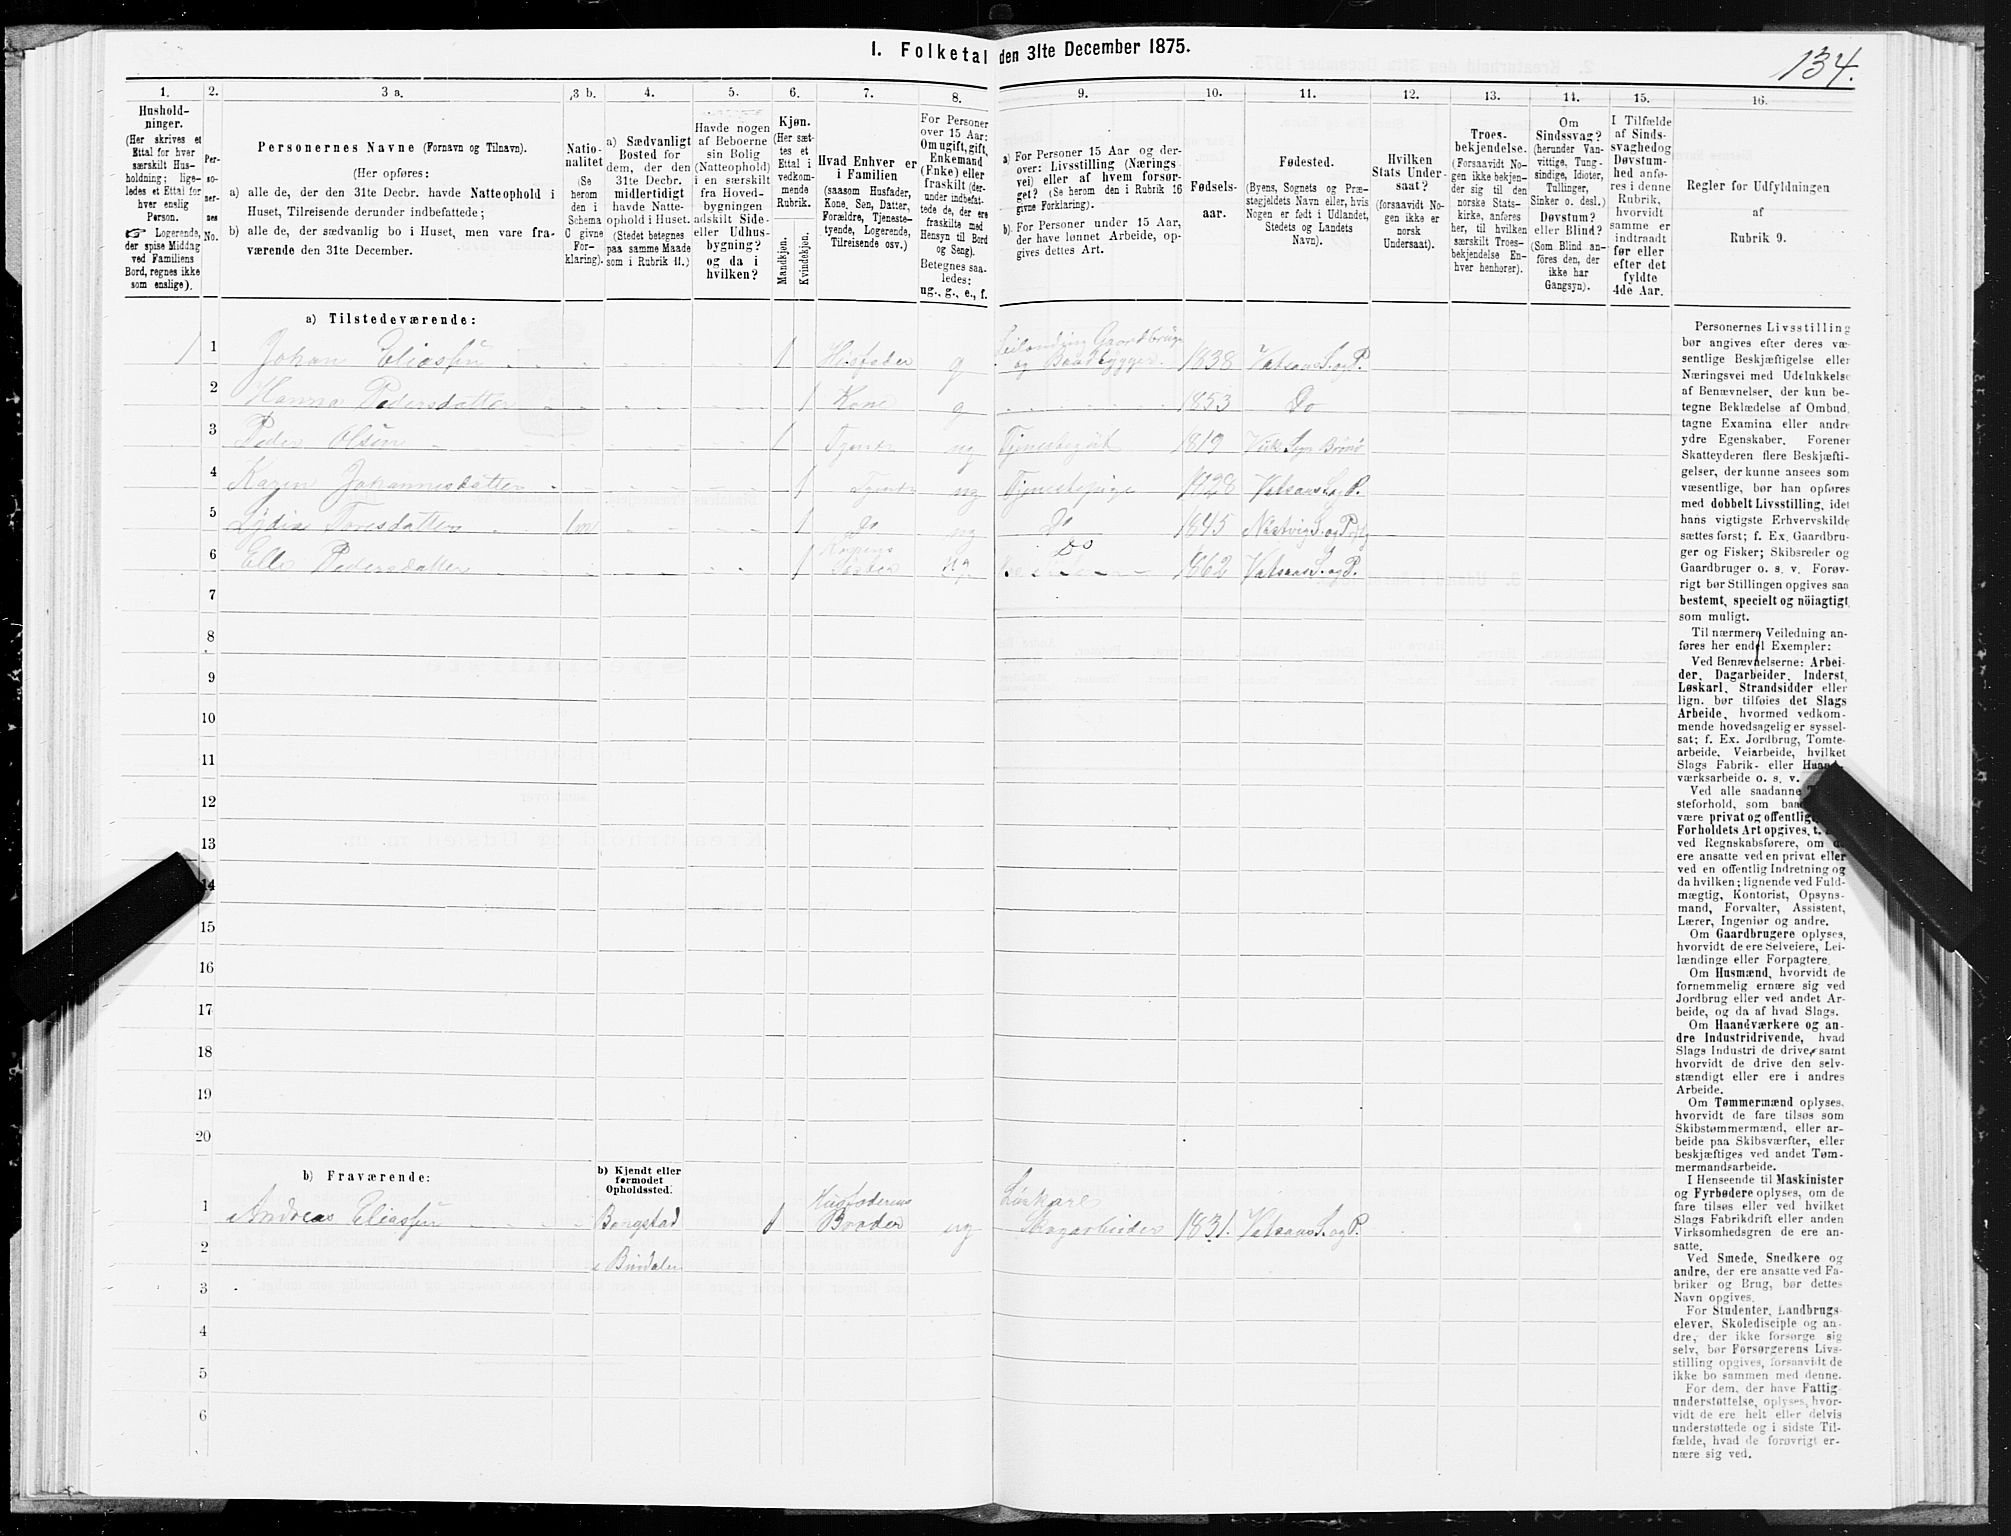 I. Folketal den 31te December 1875.
134.
1.
Hushold-
ninger.
(Her skrives et
Ettal for hver
særskilt Hus-
holdning; lige-
ledes et Ettal for
hver enslig
Person.
☞ Logerende,
der spise Middag
ved Familiens
Bord, regnes ikke
som enslige).
2.
Per-
so-
ner-
nes
No.
3 a.
Personernes Navne (Fornavn og Tilnavn).
(Her opføres:
a) alle de, der den 31te Decbr. havde Natteophold i
Huset, Tilreisende derunder indbefattede;
b) alle de, der sædvanlig bo i Huset, men vare fra-
værende den 31te December.
3 b.
Natio-
nalitet
(Se
herom
den i
Schema
C givne
For-
klaring).
4.
a) Sædvanligt
Bosted for
dem, der den
31te Decbr.
midlertidigt
havde Natte-
ophold i Huset.
(Stedet betegnes
paa samme Maade
som i Rubrik 11.)
5.
Havde nogen
af Beboerne
sin Bolig
(Natteophold)
i en særskilt
fra Hoved-
bygningen
adskilt Side-
eller Udhus-
bygning?
og da i
hvilken?
6.
Kjøn.
(Her sæt-
tes et
Ettal i
vedkom-
mende
Rubrik.
Mandkjøn.
Kvindekjøn.
7.
Hvad Enhver er
i Familien
(saasom Husfader,
Kone, Søn, Datter,
Forældre, Tjeneste-
tyende, Logerende,
Tilreisende osv.)
8.
For Personer
over 15 Aar:
Om ugift, gift,
Enkemand
(Enke) eller
fraskilt (der-
under indbefat-
tede de, der ere
fraskilte med
Hensyn til Bord
og Seng).
Betegnes saa-
ledes:
ug., g., e., f.
9.
a) For Personer 15 Aar og der-
over: Livsstilling (Nærings-
vei) eller af hvem forsør-
get? (Se herom den i Rubrik 16
givne Forklaring).
b) For Personer under 15 Aar,
der have lønnet Arbeide, op-
gives dettes Art.
10.
Fødsels-
aar.
11.
Fødested.
(Byens, Sognets og Præ-
stegjeldets Navn eller, hvis
Nogen er født i Udlandet,
Stedets og Landets
Navn).
12.
Hvilken
Stats Under-
saat?
(forsaavidt No-
gen ikke er
norsk
Undersaat).
13.
Troes-
bekjendelse.
(Forsaavidt No-
gen ikke bekjen-
der sig til den
norske Stats-
kirke, anføres
her, til hvilken
særskilt Troes-
bekjendelse En-
hver henhorer).
14.
Om
Sindssvag?
(herunder Van-
vittige, Tung-
sindige, Idioter,
Tullinger,
Sinker o. desl.)
Døvstum?
eller Blind?
(Som Blind an-
føres den, der
ikke har
Gangsyn).
15.
I Tilfælde
af Sinds-
svaghed og
Døvstum-
hed anfø-
res i denne
Rubrik,
hvorvidt
samme er
indtraadt
før eller
efter det
fyldte
4de Aar.
16.
Regler for Udfyldningen
af
Rubrik 9.
a) Tilstedeværende:
1 1 Johan Eliassen 1 Husfader g Leilending Gaardbruger og Baadbygger. 1838 Vatsaas S. og P.
2 Hanna Pedersdatter 1 Kone g 1853 Do
3 Peder Olsen 1 ug Tjenestegut 1819 Viik Sogn Brønø
4 Karen Johannesdatter 1 ug Tjenestepige 1828 Vatsaas S. og P.
5 Lydia Toresdatter 1 Do ug Do 1845
6 Elle Pedersdatter 1 Konens Søster ug. Do 1862 Vatsaas S. og P.
7
8
9
10
11
12
13
14
15
16
17
18
19
20
b) Fraværende:
b) Kjendt eller
formodet
Opholdssted.
1 Andreas Eliassen Bangstad i Bindalen 1 Husfaderens Broder ug Løskarl Skogarbeider 1831. Vatsaas S. og P.
2
3
4
5
6
Personernes Livsstilling
bør angives efter deres væ-
sentlige Beskjæftigelse eller
Næringsvei med Udelukkelse
af Benævnelser, der kun be-
tegne Beklædelse af Ombud,
tagne Examina eller andre
ydre Egenskaber. Forener
Skatteyderen flere Beskjæfti-
gelser, der kunne ansees som
væsentlige, bør han opføres
med dobbelt Livsstilling, idet
hans vigtigste Erhvervskilde
sættes først; f. Ex. Gaardbru-
ger og Fisker; Skibsreder og
Gaardbruger o. s. v. Forøv-
rigt bør Stillingen opgives saa
bestemt, specielt og nöiagtigt
som muligt.
Til nærmere Veiledning an-
føres her endel Exempler:
Ved Benævnelserne: Arbei-
der, Dagarbeider, Inderst,
Løskarl, Strandsidder eller
lign. bør tilføies det Slags
Arbeide, hvormed vedkom-
mende hovedsagelig er syssel-
sat; f. Ex. Jordbrug, Tomte-
arbeide, Veiarbeide, hvilket
Slags Fabrik- eller Haand-
værksarbeide o. s. v.
Ved alle saadanne
steforhold, som baa
være privat og offentlig
Forholdets Art opgives, t.
ved Regnskabsførere, om
ere ansatte ved en privat eller
ved en offentlig Indretning og
da hvilken; lignende ved Fuld-
mægtig, Kontorist, Opsyns-
mand, Forvalter, Assistent,
Lærer, Ingeniør og andre.
Om Gaardbrugere oplyses,
hvorvidt de ere Selveiere, Lei-
lændinge eller Forpagtere.
Om Husmænd, hvorvidt de
fornemmelig ernære sig ved
Jordbrug eller ved andet Ar-
beide, og da af hvad Slags.
Om Haandværkere og an-
dre Industridrivende, hvad
Slags Industri de drive, samt
hvorvidt de drive den selv-
stændigt eller ere i andres
Arbeide.
Om Tømmermænd oplyses,
hvorvidt de fare tilsøs som
Skibstømmermænd, eller ar-
beide paa Skibsværfter, eller
beskjæftiges ved andet Tøm-
mermandsarbeide.
I Henseende til Maskinister
og Fyrbødere oplyses, om de
fare tilsøs eller ved hvilket
Slags Fabrikdrift eller anden
Virksomhedsgren de ere an-
satte.
Ved Smede, Snedkere og
andre, der ere ansatte ved Fa-
briker og Brug, bør dettes
Navn opgives.
For Studenter, Landbrugs-
elever, Skoledisciple og an-
dre, der ikke forsørge sig
selv, bør Forsørgerens Livs-
stilling opgives, forsaavidt de
ikke bo sammen med denne.
For dem, der have Fattig-
understøttelse, oplyses, hvor-
vidt de ere helt eller delvis
understøttede og i sidste Til-
fælde, hvad de forøvrigt er-
nære sig ved.